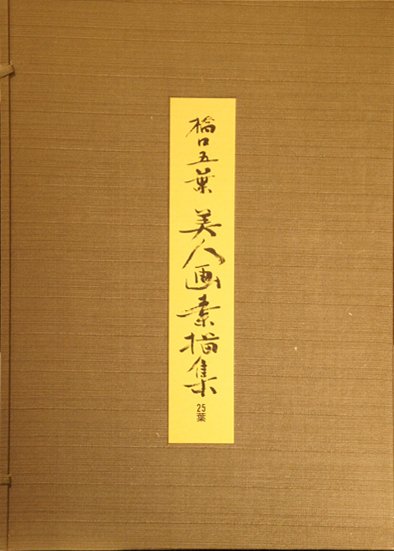 橋口五葉 美人画素描集
25葉